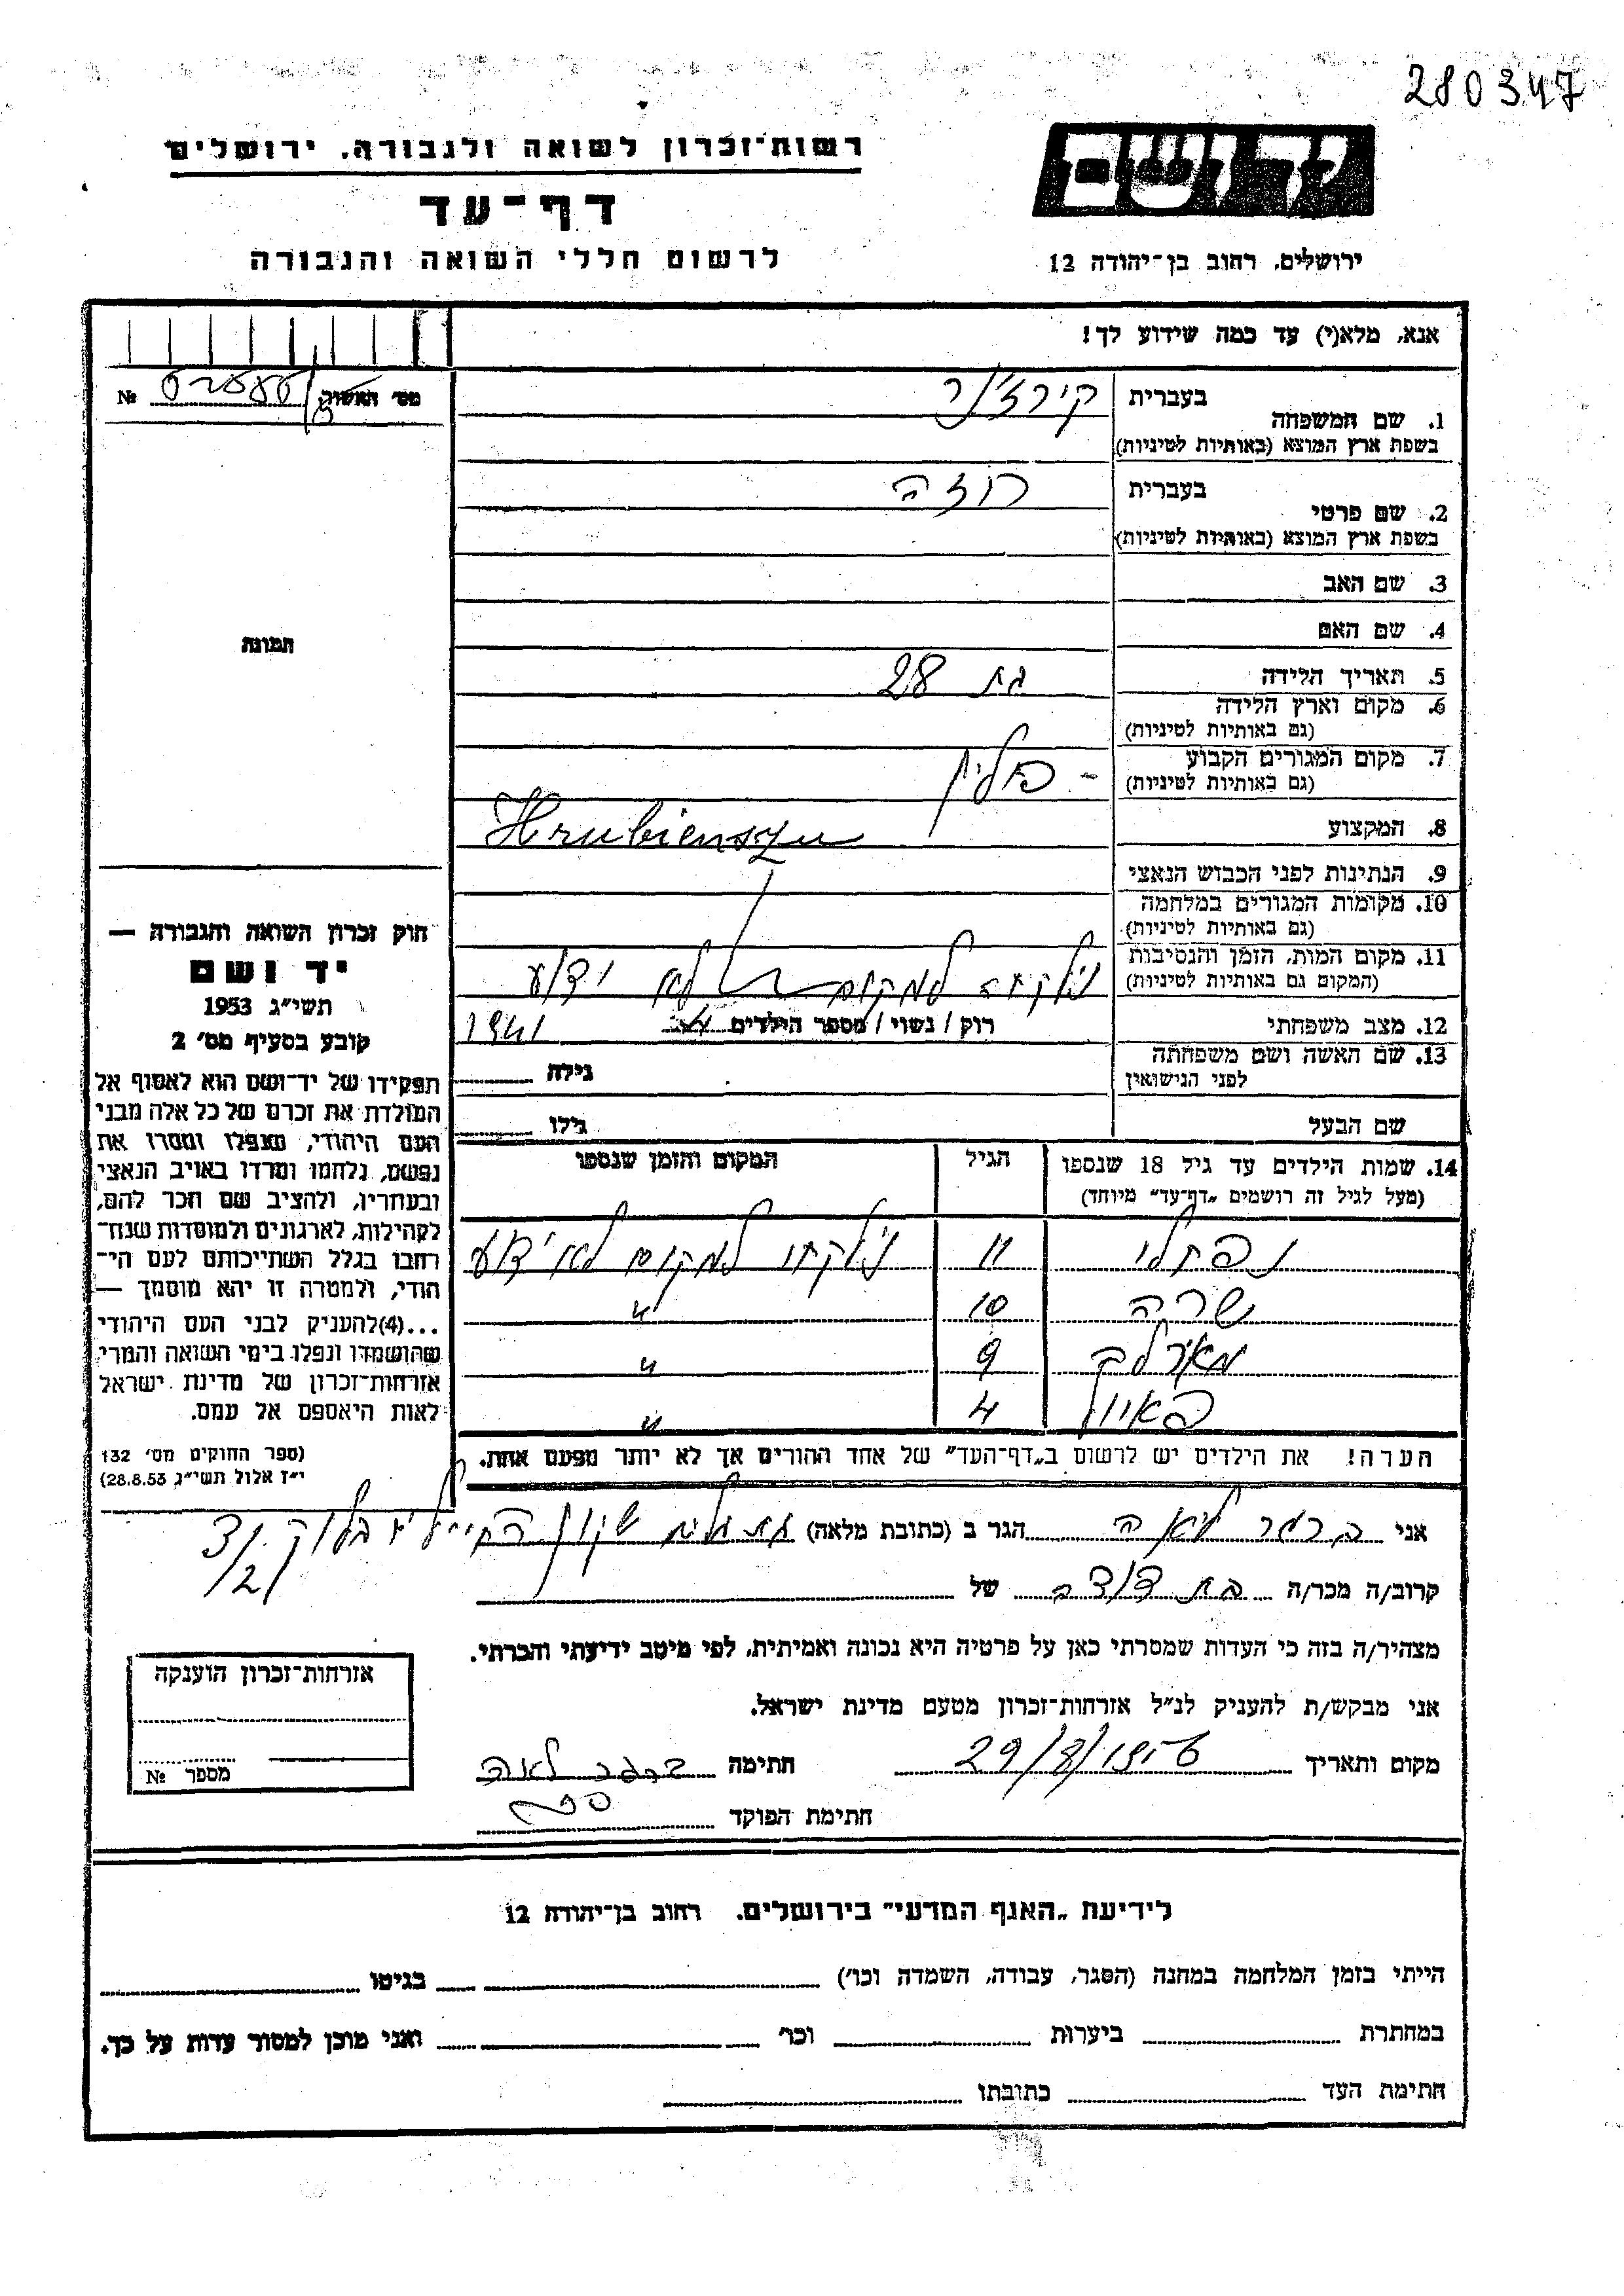 280347
רשות־זכרון לשואה ולגבורה, ירושלים
יד ושם
דף־עד
לרשום חללי השואה והגבורה
ירושלים, רחוב בן־יהודה 12
אנא, מלא(י) עד כמה שידוע לך!
№
1. שם המשפחה
בעברית
בשפת ארץ המוצא (באותיות לטיניות)
2. שם פרטי
בעברית רוזה
בשפת ארץ המוצא (באותיות לטיניות)
3. שם האב
4. שם האם
5. תאריך הלידה בת 28
6. מקום וארץ הלידה
(גם באותיות לטיניות)
7. מקום המגורים הקבוע פולין
(גם באותיות לטיניות)
8. המקצוע
9. הנתינות לפני הכבוש הנאצי
10. מקומות המגורים במלחמה
(גם באותיות לטיניות)
11. מקום המות, הזמן והנסיבות נילקחה למקום לא ידוע
(המקום גם באותיות לטיניות)
12. מצב משפחתי רוק / נשוי / מספר הילדים 4 1941
13. שם האשה ושם משפחתה
לפני הנישואין
גילה
שם הבעל גילו
14. שמות הילדים עד גיל 18 שנספו הגיל המקום והזמן שנספו
(מעל לגיל זה רושמים „דף־עד” מיוחד)
נפתלי 11 נילקחו למקום לא ידוע
שרה 10 "
9 "
4 "
הערה! את הילדים יש לרשום ב„דף־העד” של אחד ההורים אך לא יותר מפעם אחת.
תמונה
חוק זכרון השואה והגבורה —
יד ושם
תשי״ג 1953
קובע בסעיף מס׳ 2
תפקידו של יד־ושם הוא לאסוף אל
המולדת את זכרם של כל אלה מבני
העם היהודי, שנפלו ומסרו את
נפשם, נלחמו ומרדו באויב הנאצי
ובעוזריו, ולהציב שם וזכר להם,
לקהילות, לארגונים ולמוסדות שנח־
רבו בגלל השתייכותם לעם הי־
הודי, ולמטרה זו יהא מוסמך —
...(4)להעניק לבני העם היהודי
שהושמדו ונפלו בימי השואה והמרי
אזרחות־זכרון של מדינת ישראל
לאות היאספם אל עמם.
(ספר החוקים מס׳ 132
י״ז אלול תשי״ג 28.8.53)
אני ברגר לאה הגר ב (כתובת מלאה)
קרוב/ה מכר/ה בת דודה של
מצהיר/ה בזה כי העדות שמסרתי כאן על פרטיה היא נכונה ואמיתית, לפי מיטב ידיעתי והכרתי.
אני מבקש/ת להעניק לנ״ל אזרחות־זכרון מטעם מדינת ישראל.
מקום ותאריך חתימה ברגר לאה
חתימת הפוקד
אזרחות־זכרון הוענקה
מספר №
לידיעת „האגף המדעי” בירושלים. רחוב בן־יהודה 12
הייתי בזמן המלחמה במחנה (הסגר, עבודה, השמדה וכו׳) בגיטו
במחתרת ביערות וכו׳ ואני מוכן למסור עדות על כך.
חתימת העד כתובתו